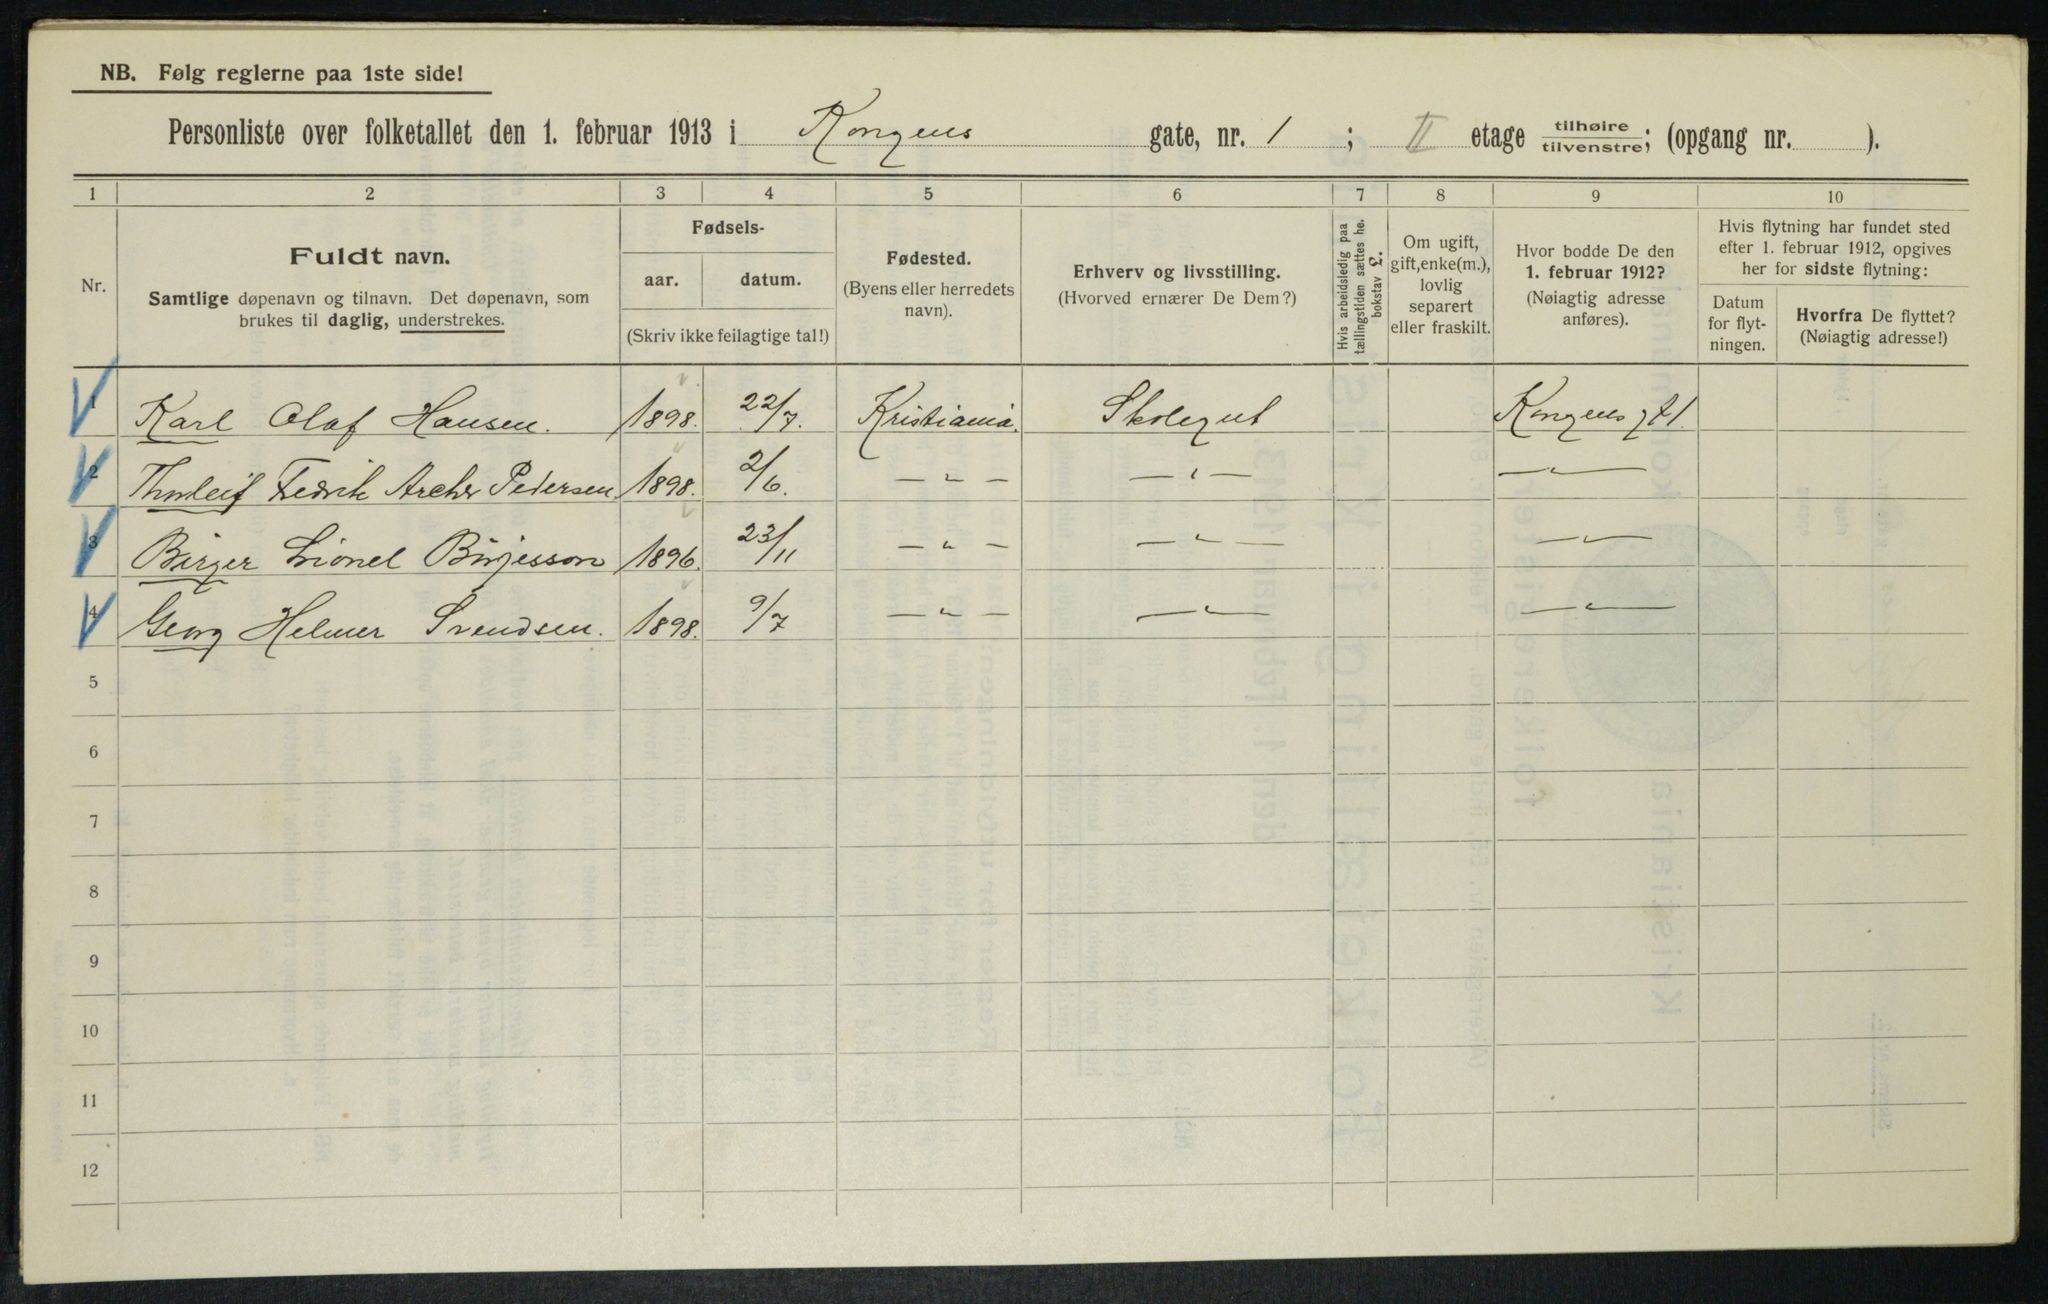 NB. Følg reglerne paa 1ste side!
Personliste over folketallet den 1. februar 1913 i Kongens gate, nr. 1 ; II etage tilhøire tilvenstre; (opgang nr. ).
1 2 3 4 5 6 7 8 9 10
Nr.
Fuldt navn.
Samtlige døpenavn og tilnavn. Det døpenavn, som
brukes til daglig, understrekes.
Fødsels-
aar. datum.
(Skriv ikke feilagtige tal!)
Fødested.
(Byens eller herredets
navn).
Erhverv og livsstilling.
(Hvorved ernærer De Dem?)
Hvis arbeidsledig paa
tællingstiden sættes he.
bokstav L.
Om ugift,
gift, enke(m.),
lovlig
separert
eller fraskilt.
Hvor bodde De den
1. februar 1912?
(Nøiagtig adresse
anføres).
Hvis flytning har fundet sted
efter 1. februar 1912, opgives
her for sidste flytning:
Datum
for flyt-
ningen.
Hvorfra De flyttet?
(Nøiagtig adresse!)
1 Karl Olaf Hansen. 1898. 22/7. Kristiania. Skolegut Kongens gt 1.
2 Thorleif Fredrik Archer Pedersen 1898. 2/6. — " — — " — — " —
3 Birger Lionel Börjesson 1896. 23/11 — " — — " — — " —
4 Georg Helmer Svendsen. 1898. 9/7 — " — — " — — " —
5
6
7
8
9
10
11
12